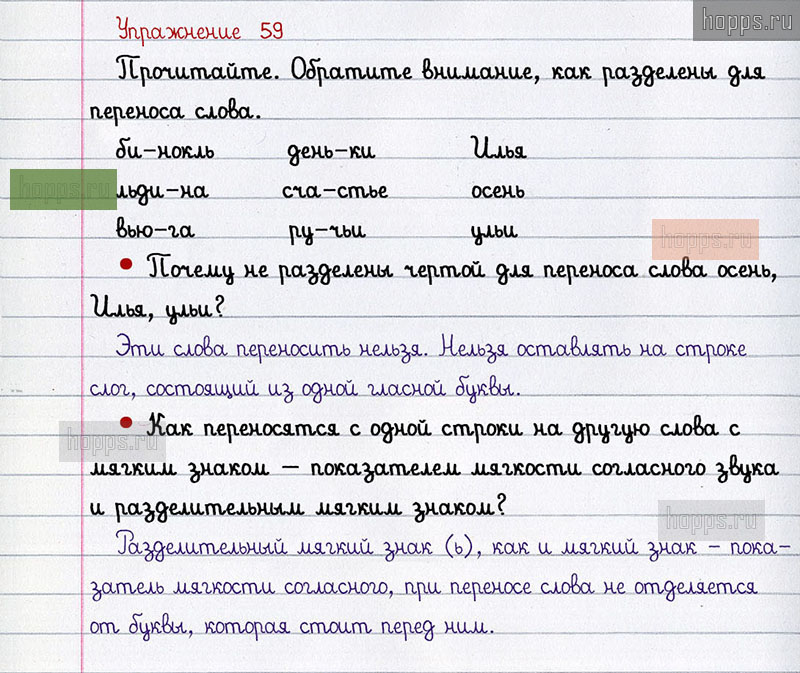 hopps.ru
Упражнение 59
Прочитайте. Обратите внимание, как разделены для
переноса слова.
би-нокль день-ки Илья
hopps.ru льди-на сча-стье осень
вью-га ру-чьи ульи
hopps.ru
• Почему не разделены чертой для переноса слова осень,
Илья, ульи?
Эти слова переносить нельзя. Нельзя оставлять на строке
слог, состоящий из одной гласной буквы.
• Как переносятся с одной строки на другую слова с
hopps.ru
мягким знаком – показателем мягкости согласного звука
и разделительным мягким знаком?
hopps.ru
Разделительный мягкий знак (ь), как и мягкий знак – пока-
затель мягкости согласного, при переносе слова не отделяется
от буквы, которая стоит перед ним.